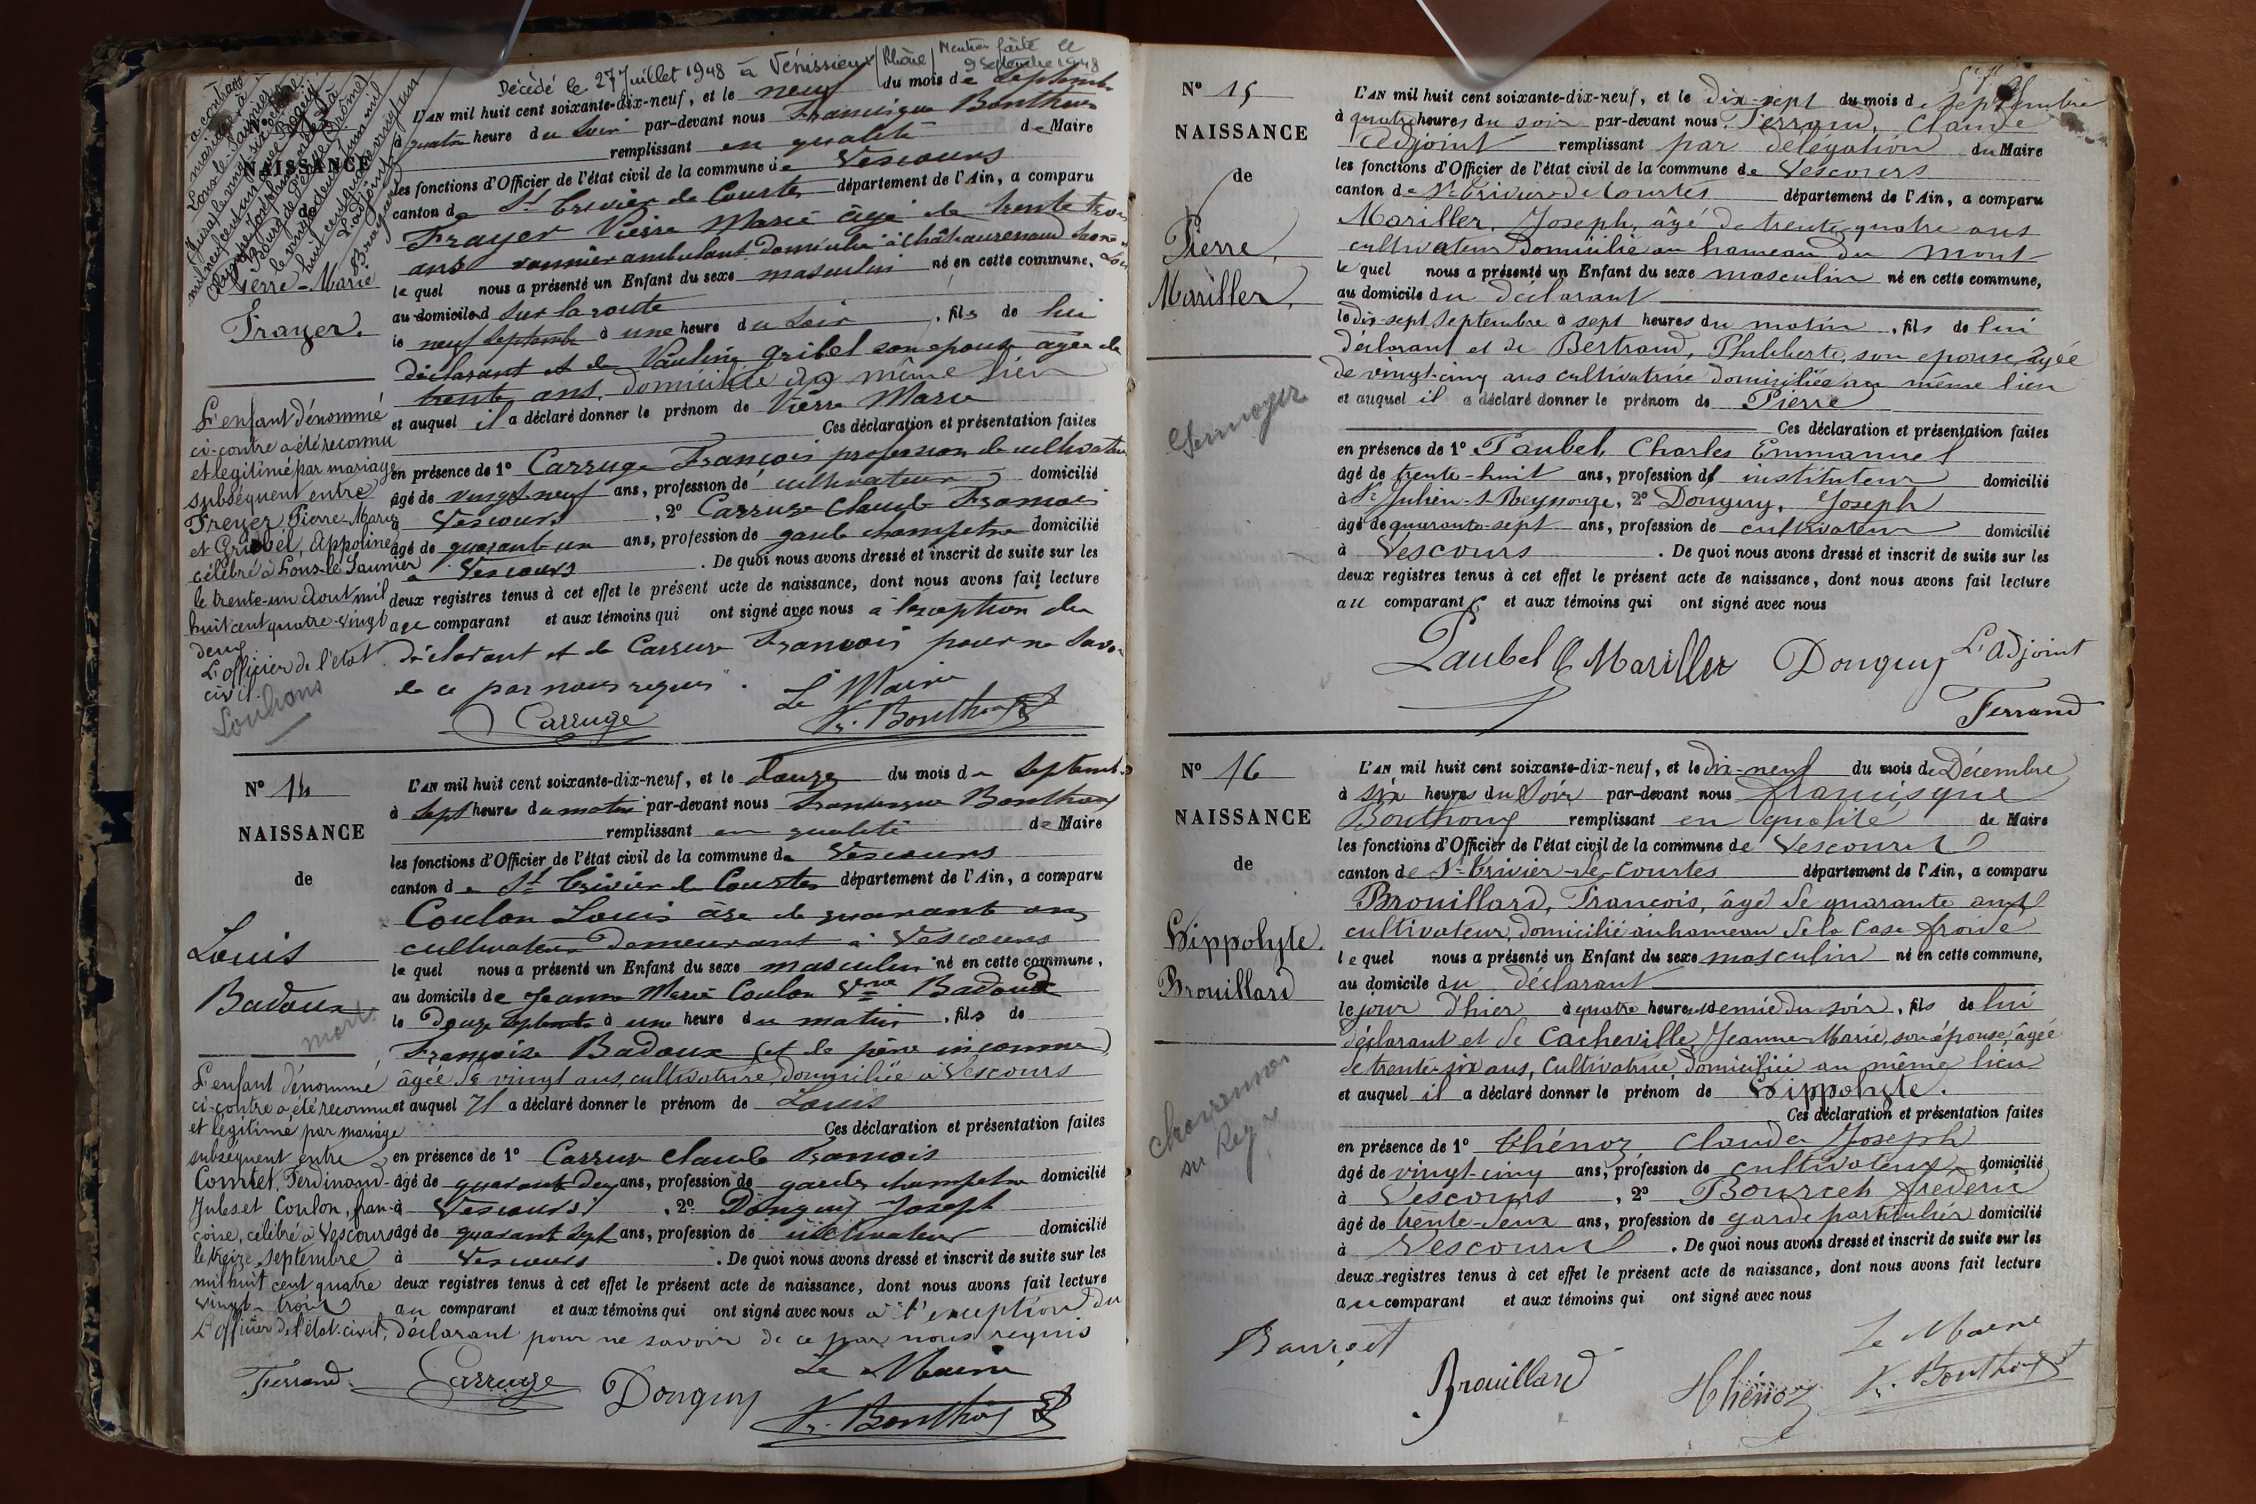 Décédé le 27 Juillet 1948 à Vénissieux (Rhône) Mention faite le
9 Septembre 1948
a contracté
mariage à
Lons-le-Saunier
NAISSANCE
de
Pierre-Marie
Frayer.
L'AN mil huit cent soixante-dix-neuf, et le neuf du mois de Septembre
à quatre heure du Soir par-devant nous Francisque Bonthoux
remplissant en qualité de Maire
les fonctions d'Officier de l'état civil de la commune de Vescours
canton de St Trivier de Courtes département de l'Ain, a comparu
Frayer Pierre Marie âgé de trente trois
ans vannier ambulant domicilié à châteaurenaud Saone
le quel nous a présenté un Enfant du sexe masculin né en cette commune,
au domicile d sur la route
le neuf Septembre à une heure du Soir, fils de lui
déclarant et de Pauline Gribel son epouse agée de
trente ans, domiciliée au même lieu
et auquel il a déclaré donner le prénom de Pierre Marie
Ces déclaration et présentation faites
en présence de 1° Carruge François profession de cultivateur
âgé de vingt-neuf ans, profession de cultivateur domicilié
à Vescours, 2° Carruge Claude François
âgé de quarante un ans, profession de garde champetre domicilié
à Vescours. De quoi nous avons dressé et inscrit de suite sur les
deux registres tenus à cet effet le présent acte de naissance, dont nous avons fait lecture
au comparant et aux témoins qui ont signé avec nous à l'exception du
déclarant et de Carruge François pour ne Savoir
de ce par nous requis.
Le Maire
Carruge Fr. Bonthoux
L'enfant dénommé
ci-contre a été reconnu
et légitimé par mariage
subséquent entre
Freyer, Pierre-Marie
et Griebel, Appoline
célébré à Lons-le-Saunier
le trente-un Aout mil
huit cent quatre-vingt
deux
L'officier de l'état
civil.
Louhans
N° 14
NAISSANCE
de
Louis
Badoux
mort
L'AN mil huit cent soixante-dix-neuf, et le douze du mois de Septembre
à Sept heure du matin par-devant nous Francisque Bonthoux
remplissant en qualité de Maire
les fonctions d'Officier de l'état civil de la commune de Vescours
canton de St Trivier de Courtes département de l'Ain, a comparu
Coulon Louis âge de quarante ans
cultivateur Demeurant à Vescours
le quel nous a présenté un Enfant du sexe masculin né en cette commune,
au domicile de Jeanne Marie Coulon Vve Badoux
le Douze Septembre à une heure du matin, fils de
Françoise Badoux (et de père inconnue)
âgée de vingt ans, cultivatrice, domiciliée à Vescours
et auquel Il a déclaré donner le prénom de Louis
Ces déclaration et présentation faites
en présence de 1° Carruge Claude François
âgé de quarante deux ans, profession de garde champetre domicilié
à Vescours, 2° Donguy Joseph
âgé de quarante Sept ans, profession de cultivateur domicilié
à Vescours. De quoi nous avons dressé et inscrit de suite sur les
deux registres tenus à cet effet le présent acte de naissance, dont nous avons fait lecture
au comparant et aux témoins qui ont signé avec nous à l'exception du
déclarant pour ne savoir de ce par nous requis
Le Maire
Ferrand. Carruge Donguy Fr. Bonthoux
L'enfant dénommé
ci-contre a été reconnu
et légitimé par mariage
subséquent entre
Comtet, Ferdinand-
Jules et Coulon, fran-
çoise, célébré à Vescours
le treize septembre
mil huit cent quatre
vingt-trois
L'officier de l'état-civil,
N° 15
NAISSANCE
de
Pierre,
Mariller,
Sermoyer
L'AN mil huit cent soixante-dix-neuf, et le dix-sept du mois de septembre
à quatre heures du soir par-devant nous Ferrand, Claude
adjoint remplissant par délégation du Maire
les fonctions d'Officier de l'état civil de la commune de Vescours
canton de St-Trivier-de-Courtes département de l'Ain, a comparu
Mariller, Joseph, âgé de trente-quatre ans
cultivateur domicilié au hameau du Mont
le quel nous a présenté un Enfant du sexe masculin né en cette commune,
au domicile du déclarant
le dix-sept Septembre à sept heures du matin, fils de lui
déclarant et de Bertrand, Philiberte, son épouse, âgée
de vingt-cinq ans cultivatrice domiciliée au même lieu
et auquel il a déclaré donner le prénom de Pierre
Ces déclaration et présentation faites
en présence de 1° Paubel, Charles Emmanuel
âgé de trente-huit ans, profession d' instituteur domicilié
à St Julien-s-Reyssouze, 2° Donguy, Joseph
âgé de quarante-sept ans, profession de cultivateur domicilié
à Vescours. De quoi nous avons dressé et inscrit de suite sur les
deux registres tenus à cet effet le présent acte de naissance, dont nous avons fait lecture
au comparant et aux témoins qui ont signé avec nous
Paubel Mariller Donguy L'Adjoint
Ferrand
N° 16
NAISSANCE
de
Hippolyte.
Brouillard
L'AN mil huit cent soixante-dix-neuf, et le dix-neuf du mois de Décembre
à six heures du Soir par-devant nous francisque
Bonthoux remplissant en qualité de Maire
les fonctions d'Officier de l'état civil de la commune de Vescours
canton de St-Trivier-de-Courtes département de l'Ain, a comparu
Brouillard, François, âgé de quarante ans
cultivateur, domicilié au hameau de la Case froide
le quel nous a présenté un Enfant du sexe masculin né en cette commune,
au domicile du déclarant
le jour d'hier à quatre heures et demie du soir, fils de lui
déclarant et de Cacheville, Jeanne-Marie, son épouse, âgée
de trente-six ans, cultivatrice, domiciliée au même lieu
et auquel il a déclaré donner le prénom de Hippolyte.
Ces déclaration et présentation faites
en présence de 1° Thénoz Claude Joseph
âgé de vingt-cinq ans, profession de cultivateur domicilié
à Vescours, 2° Bourcet frédéric
âgé de trente-deux ans, profession de garde particulier domicilié
à Vescours. De quoi nous avons dressé et inscrit de suite sur les
deux registres tenus à cet effet le présent acte de naissance, dont nous avons fait lecture
au comparant et aux témoins qui ont signé avec nous
Le Maire
Bourcet Brouillard Thénoz Fr. Bonthoux